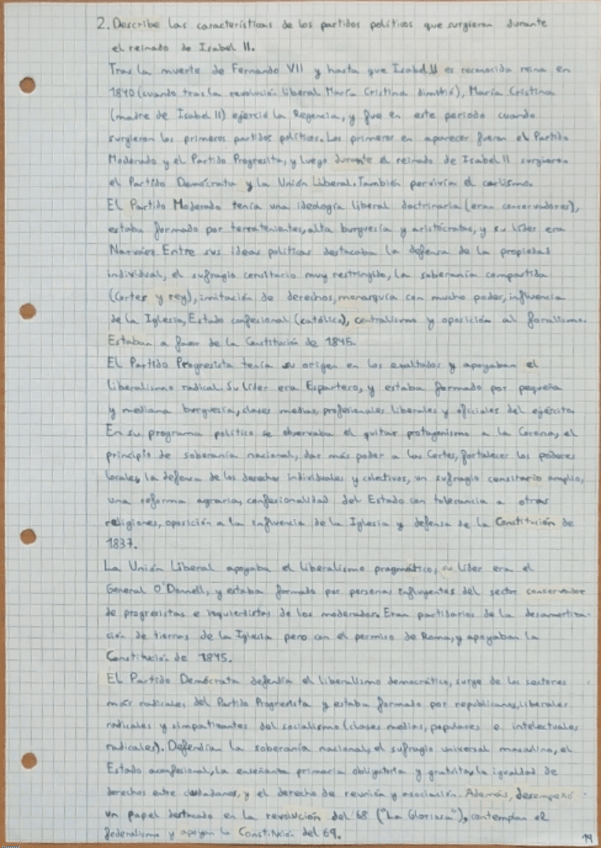 2. Describe las características de los partidos políticos que surgieron durante
el reinado de Isabel II.
Tras la muerte de Fernando VII y hasta que Isabel II es reconocida reina en
1840 (cuando tras la revolución liberal María Cristina dimitió), María Cristina
(madre de Isabel II) ejerció la Regencia, y fue en este periodo cuando
surgieron los primeros partidos políticos. Los primeros en aparecer fueron el Partido
Moderado y el Partido Progresita, y luego durante el reinado de Isabel II surgieron
el Partido Demócrata y la Unión Liberal. También pervivía el carlismo.
El Partido Moderado tenía una ideología liberal doctrinaria (eran conservadores),
estaba formado por terratenientes, alta burguesía y aristócratas, y su líder era
Narváez. Entre sus ideas políticas destacaba la defensa de la propiedad
individual, el sufragio censitario muy restringido, la soberanía compartida
(Cortes y rey), imitación de derechos, monarquía con mucho poder, influencia
de la Iglesia, Estado confesional (católico), centralismo y oposición al foralismo.
Estaban a favor de la Constitución de 1845.
El Partido Progresista tenía su origen en los exaltados y apoyaban el
liberalismo radical. Su líder era Espartero, y estaba formado por pequeña
y mediana burguesía, clases medias, profesionales liberales y oficiales del ejército.
En su programa político se observaba el quitar protagonismo a la Corona, el
principio de soberanía nacional, dar más poder a las Cortes, fortalecer los poderes
locales, la defensa de los derechos individuales y colectivos, un sufragio censitario amplio,
una reforma agraria, confesionalidad del Estado con tolerancia a otras
religiones, oposición a la influencia de la Iglesia y defensa de la Constitución de
1837.
La Unión Liberal apoyaba el liberalismo pragmático, su líder era el
General O'Donnell, y estaba formado por personas influyentes del sector conservador
de progresistas e izquierdistas de los moderados. Eran partidarios de la desamortiza-
ción de tierras de la Iglesia pero con el permiso de Roma, y apoyaban la
Constitución de 1845.
El Partido Demócrata defendía el liberalismo democrático, surge de los sectores
más radicales del Partido Progresista y estaba formado por republicanos, liberales
radicales y simpatizantes del socialismo (clases medias, populares e intelectuales
radicales). Defendían la soberanía nacional, el sufragio universal masculino, el
Estado aconfesional, la enseñanza primaria obligatoria y gratuita, la igualdad de
derechos entre ciudadanos, y el derecho de reunión y asociación. Además, desempeñó
un papel destacado en la revolución del 68 ("La Gloriosa"), contemplan el
federalismo y apoyan la Constitución del 69.
19